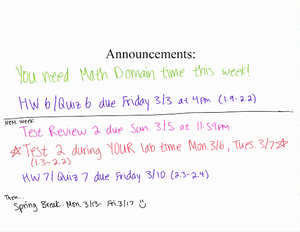 Announcements:
You need Math Domain time this week!
HW 6/Quiz 6 due Friday 3/3 at 4pm (1.9-2.2)
Next week:
Test Review 2 due Sun. 3/5 at 11:59pm
☆Test 2 during YOUR lab time Mon. 3/6, Tues. 3/7☆
(1.3-2.2)
HW 7/Quiz 7 due Friday 3/10 (2.3-2.4)
Then...
Spring Break: Mon. 3/13- Fri. 3/17 ☺